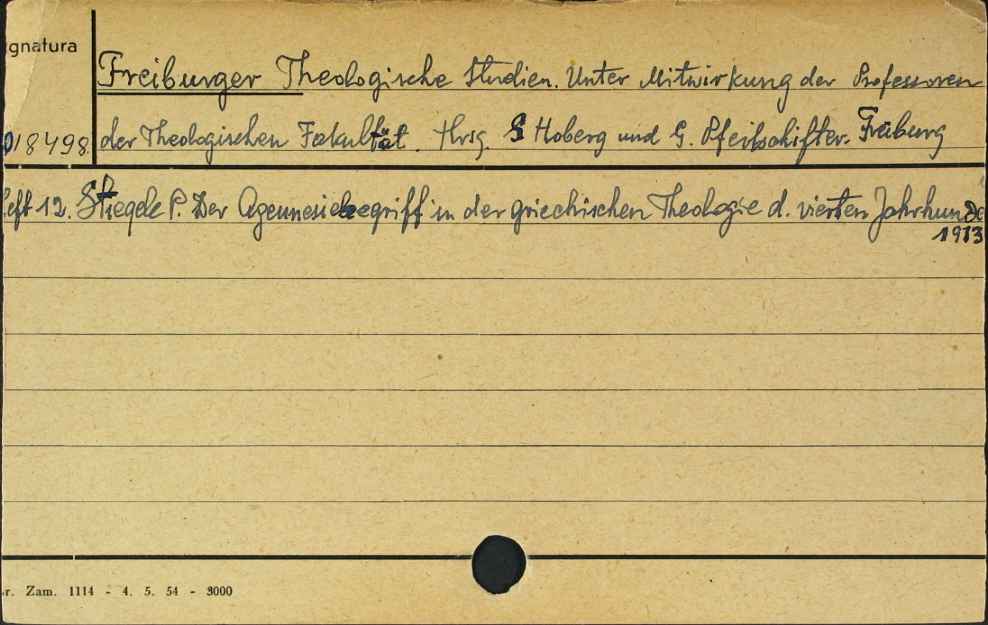 ignatura
Freiburger Theologische Studien. Unter Mitwirkung der Professoren
018498 der Theologischen Fakultät. Hrsg. G Hoberg und G. Pfeilschifter. Freiburg
Heft 12. Stiegele P. Der Agennesiebegriff in der griechischen Theologie d. vierten Jahrhunde
1913
r. Zam. 1114 - 4. 5. 54 - 3000